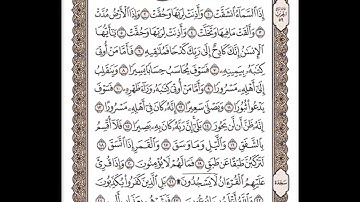 إِذَا ٱلسَّمَآءُ ٱنشَقَّتْ ۝١ وَأَذِنَتْ لِرَبِّهَا وَحُقَّتْ ۝٢ وَإِذَا ٱلْأَرْضُ مُدَّتْ
۝٣ وَأَلْقَتْ مَا فِيهَا وَتَخَلَّتْ ۝٤ وَأَذِنَتْ لِرَبِّهَا وَحُقَّتْ ۝٥ يَٰٓأَيُّهَا
ٱلْإِنسَٰنُ إِنَّكَ كَادِحٌ إِلَىٰ رَبِّكَ كَدْحًا فَمُلَٰقِيهِ ۝٦ فَأَمَّا مَنْ أُوتِيَ
كِتَٰبَهُۥ بِيَمِينِهِۦ ۝٧ فَسَوْفَ يُحَاسَبُ حِسَابًا يَسِيرًا ۝٨ وَيَنقَلِبُ
إِلَىٰٓ أَهْلِهِۦ مَسْرُورًا ۝٩ وَأَمَّا مَنْ أُوتِيَ كِتَٰبَهُۥ وَرَآءَ ظَهْرِهِۦ ۝١٠ فَسَوْفَ
يَدْعُوا۟ ثُبُورًا ۝١١ وَيَصْلَىٰ سَعِيرًا ۝١٢ إِنَّهُۥ كَانَ فِيٓ أَهْلِهِۦ مَسْرُورًا ۝١٣
إِنَّهُۥ ظَنَّ أَن لَّن يَحُورَ ۝١٤ بَلَىٰٓ إِنَّ رَبَّهُۥ كَانَ بِهِۦ بَصِيرًا ۝١٥ فَلَآ أُقْسِمُ
بِٱلشَّفَقِ ۝١٦ وَٱلَّيْلِ وَمَا وَسَقَ ۝١٧ وَٱلْقَمَرِ إِذَا ٱتَّسَقَ ۝١٨
لَتَرْكَبُنَّ طَبَقًا عَن طَبَقٍ ۝١٩ فَمَا لَهُمْ لَا يُؤْمِنُونَ ۝٢٠ وَإِذَا قُرِئَ
عَلَيْهِمُ ٱلْقُرْءَانُ لَا يَسْجُدُونَ ۩ ۝٢١ بَلِ ٱلَّذِينَ كَفَرُوا۟ يُكَذِّبُونَ
سَجْدَة